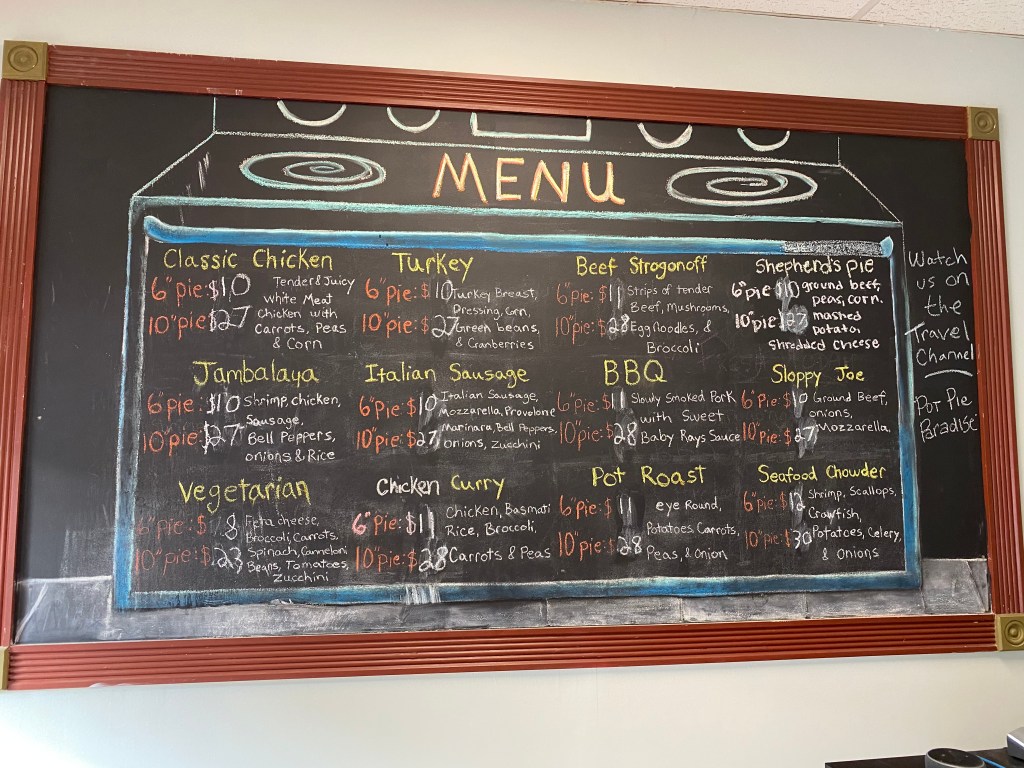 MENU
Classic Chicken
6" pie: $10
10" pie $27
Tender & Juicy
white Meat
Chicken with
Carrots, Peas
& Corn
Turkey
6" pie: $10
10" pie: $27
Turkey Breast,
Dressing, Corn,
Green beans,
& Cranberries
Beef Strogonoff
6" pie: $11
10" pie: $28
Strips of tender
Beef, Mushrooms,
Egg Noodles, &
Broccoli
Shepherds pie
6" pie $10
10" pie $27
ground beef,
peas, corn.
mashed
potato.
Shredded cheese
Jambalaya
6" pie: $10
10" pie: $27
Shrimp, chicken,
Sausage,
Bell Peppers,
onions & Rice
Italian Sausage
6" pie: $10
10" pie: $27
Italian Sausage,
Mozzarella, Provolone
Marinara, Bell Peppers,
Onions, Zucchini
BBQ
6" pie: $11
10" pie: $28
Slowly Smoked Pork
with Sweet
Baby Rays Sauce
Sloppy Joe
6" pie: $10
10" pie: $27
Ground Beef,
onions,
Mozzarella
Vegetarian
6" pie: $18
10" pie: $23
Feta cheese,
Broccoli, Carrots,
Spinach, Canneloni
Beans, Tomatoes,
Zucchini
Chicken Curry
6" pie: $11
10" pie: $28
Chicken, Basmati
Rice, Broccoli,
Carrots & Peas
Pot Roast
6" pie: $11
10" pie: $28
eye Round,
Potatoes Carrots,
Peas, & Onion
Seafood Chowder
6" pie: $12
10" pie: $30
Shrimp, Scallops,
Crawfish,
Potatoes, Celery,
& Onions
Watch
us on
the
Travel
Channel
"Pot Pie
Paradise"